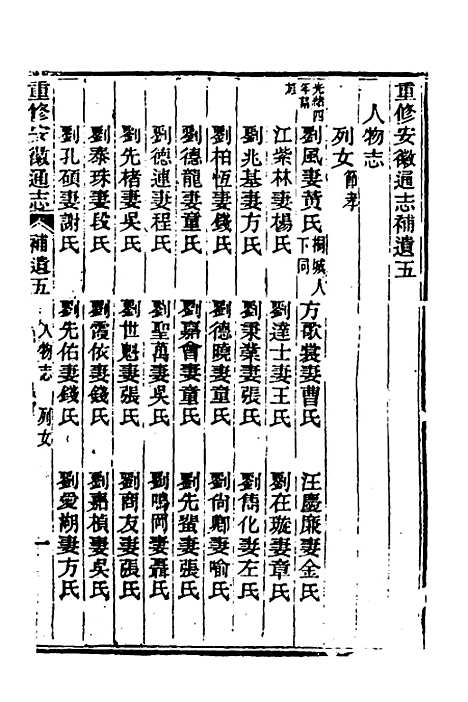 重修安徽通志補遺五
人物志
列女節孝
光緒四年 劉風妻黃氏桐城人下同 方歌裳妻曹氏 汪慶廉妻金氏
江紫林妻楊氏 劉達士妻王氏 劉在璇妻章氏
劉兆基妻方氏 劉秉業妻張氏 劉儁化妻左氏
劉柏恆妻錢氏 劉德曉妻童氏 劉尚卿妻喻氏
劉德龍妻童氏 劉嘉會妻童氏 劉先蜚妻張氏
劉德連妻程氏 劉聖萬妻吳氏 劉鳴岡妻聶氏
劉先楮妻吳氏 劉世魁妻張氏 劉商友妻張氏
劉泰珠妻段氏 劉霞依妻錢氏 劉嘉楨妻吳氏
劉孔碩妻謝氏 劉先佑妻錢氏 劉愛湖妻方氏
重修安徽通志 補遺五 人物志 列女 一